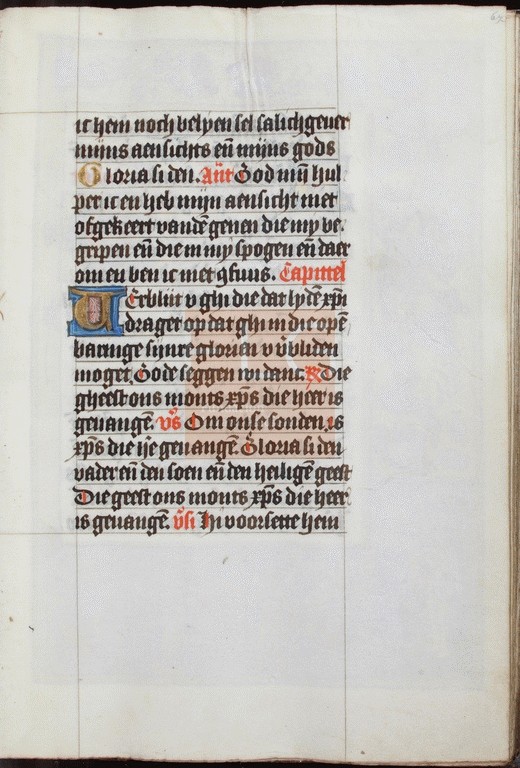 ic hem noch belyen sel salichgeuer
mijns aensichts eñ mijns gods
Gloria si den. Añt God mijn hul
per ic en heb mijn aensicht niet
ofgekeert vandē genen die my be
gripen eñ die in my spogen eñ daer
om en ben ic niet ꝯfuus. Capittel
Verbliit v ghi die dat lydē xp̄i
draget op dat ghi in die opē
baringe sijnre glorien v v̄bliden
moget. Gode seggen wi danc. ℟ Die
gheest ons monts xp̄s die heer is
geuangē. v̄s Om onse sonden is
xp̄s die he geuangē. Gloria si den
vader eñ den soen eñ den heiligē geest
Die geest ons monts xp̄s die heer
is geuangē. v̄si Hi voorsette hem